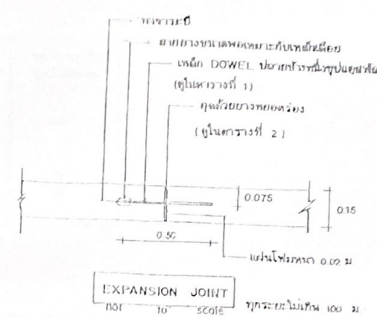 ทาจาระบี
ฝาครอบขนาดพอเหมาะกับเหล็กเดือย
เหล็ก DOWEL ปลายข้างหนึ่งชุปแอสฟัล
(ดูในตารางที่ 1)
อุดด้วยยางหยอดร่อง
(ดูในตารางที่ 2)
0.075
0.15
0.50
แผ่นโฟมหนา 0.02 ม
EXPANSION JOINT
not to scale
ทุกระยะไม่เกิน 100 ม.